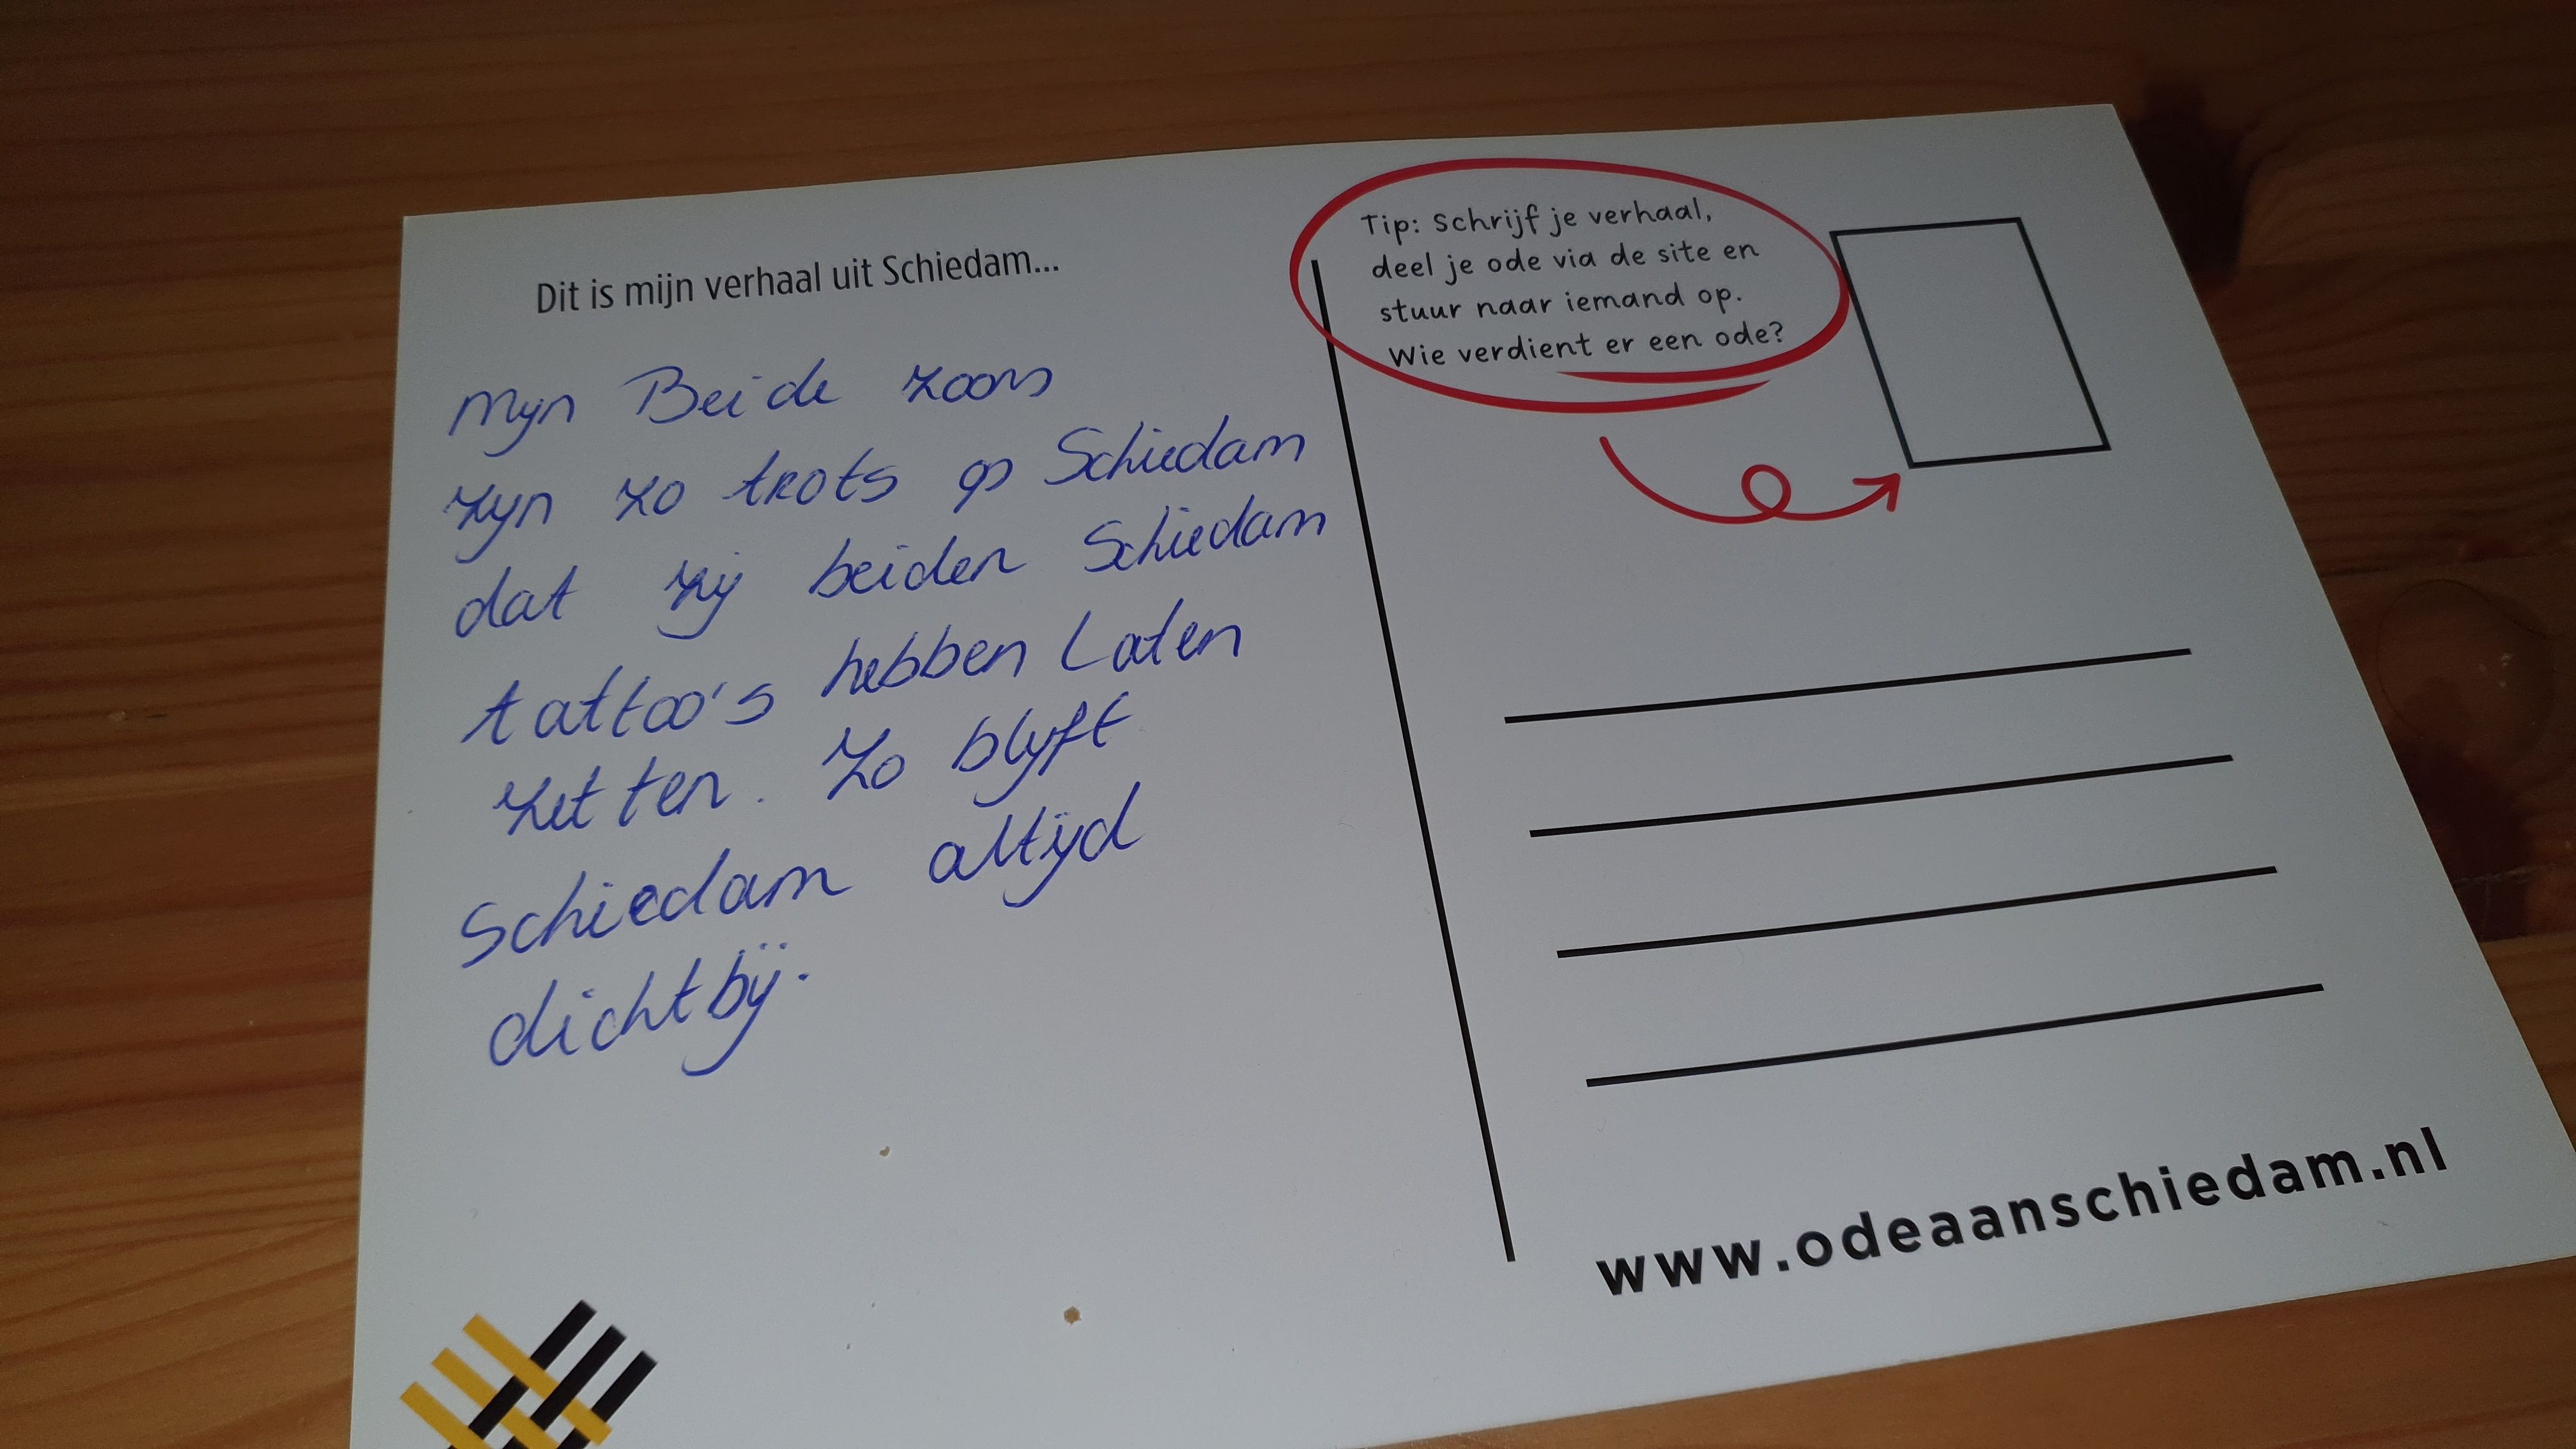 Dit is mijn verhaal uit Schiedam...
Mijn Beide zoons
zijn zo trots op Schiedam
dat zij beiden Schiedam
tattoo's hebben Laten
zetten. Zo blijft
Schiedam altijd
dichtbij.
Tip: Schrijf je verhaal,
deel je ode via de site en
stuur naar iemand op.
Wie verdient er een ode?
www.odeaanschiedam.nl